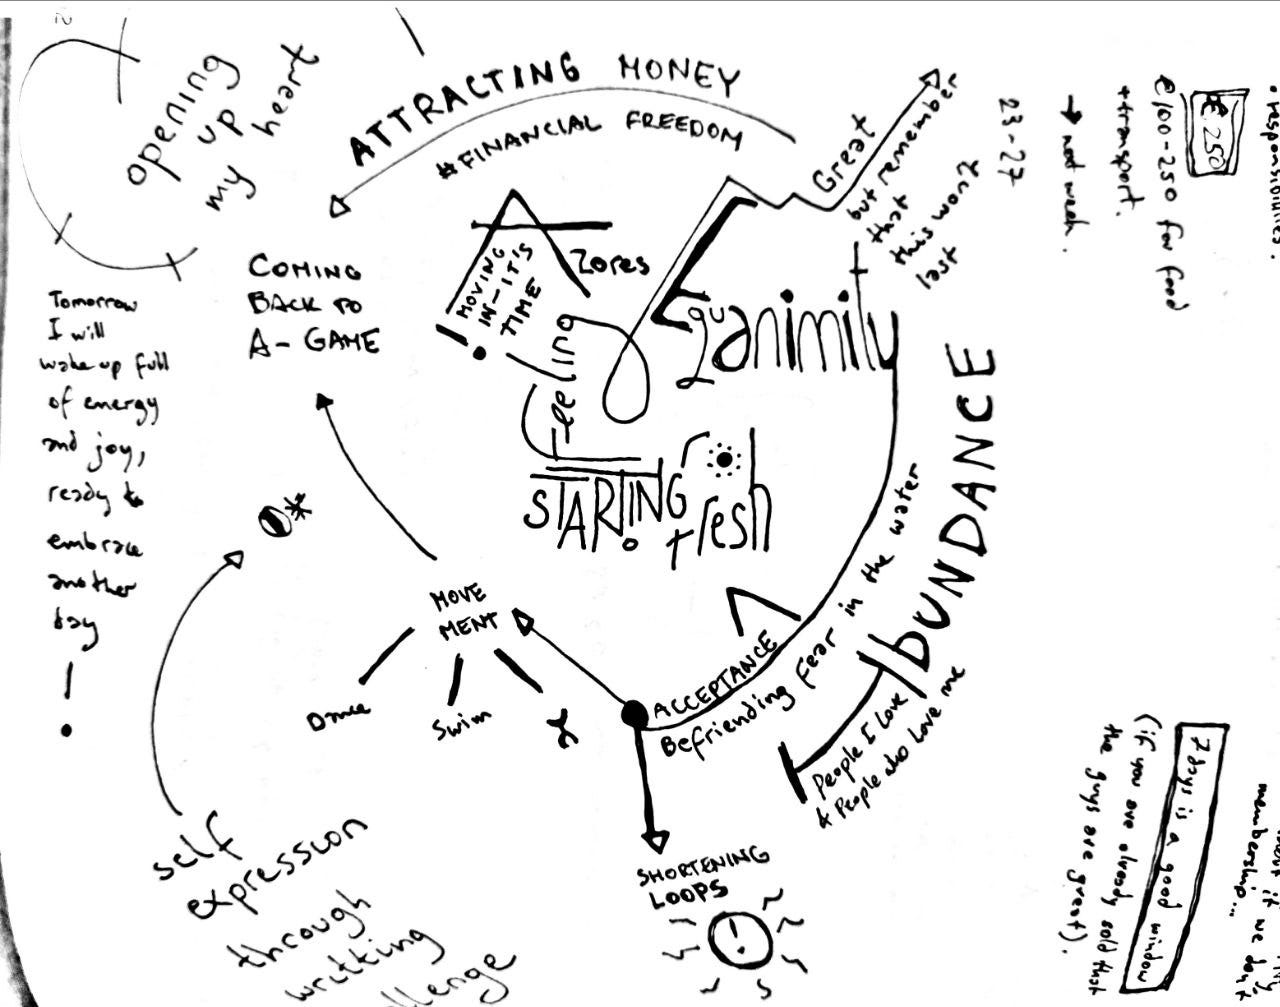 opening
up
my heart
ATTRACTING MONEY
#FINANCIAL FREEDOM
COMING
BACK TO
A-GAME
Tomorrow
I will
wake up full
of energy
and joy,
ready to
embrace
another
day
!
MOVING
IN-IT'S
TIME
!
Azores
Feeling
Equanimity
Great
but remember
that
this won't
last
STARTING
fresh
ABUNDANCE
People I Love
& People who Love me
ACCEPTANCE
Befriending Fear in the water
MOVE
MENT
Dance
Swim
SHORTENING
LOOPS
!
self
expression
through
writting
responsibilities.
€250
€100-250 for food
+ transport.
→ not week.
23-27
7 days is a good window
(if you are already sold that
the guys are great).
membership...
if we don't